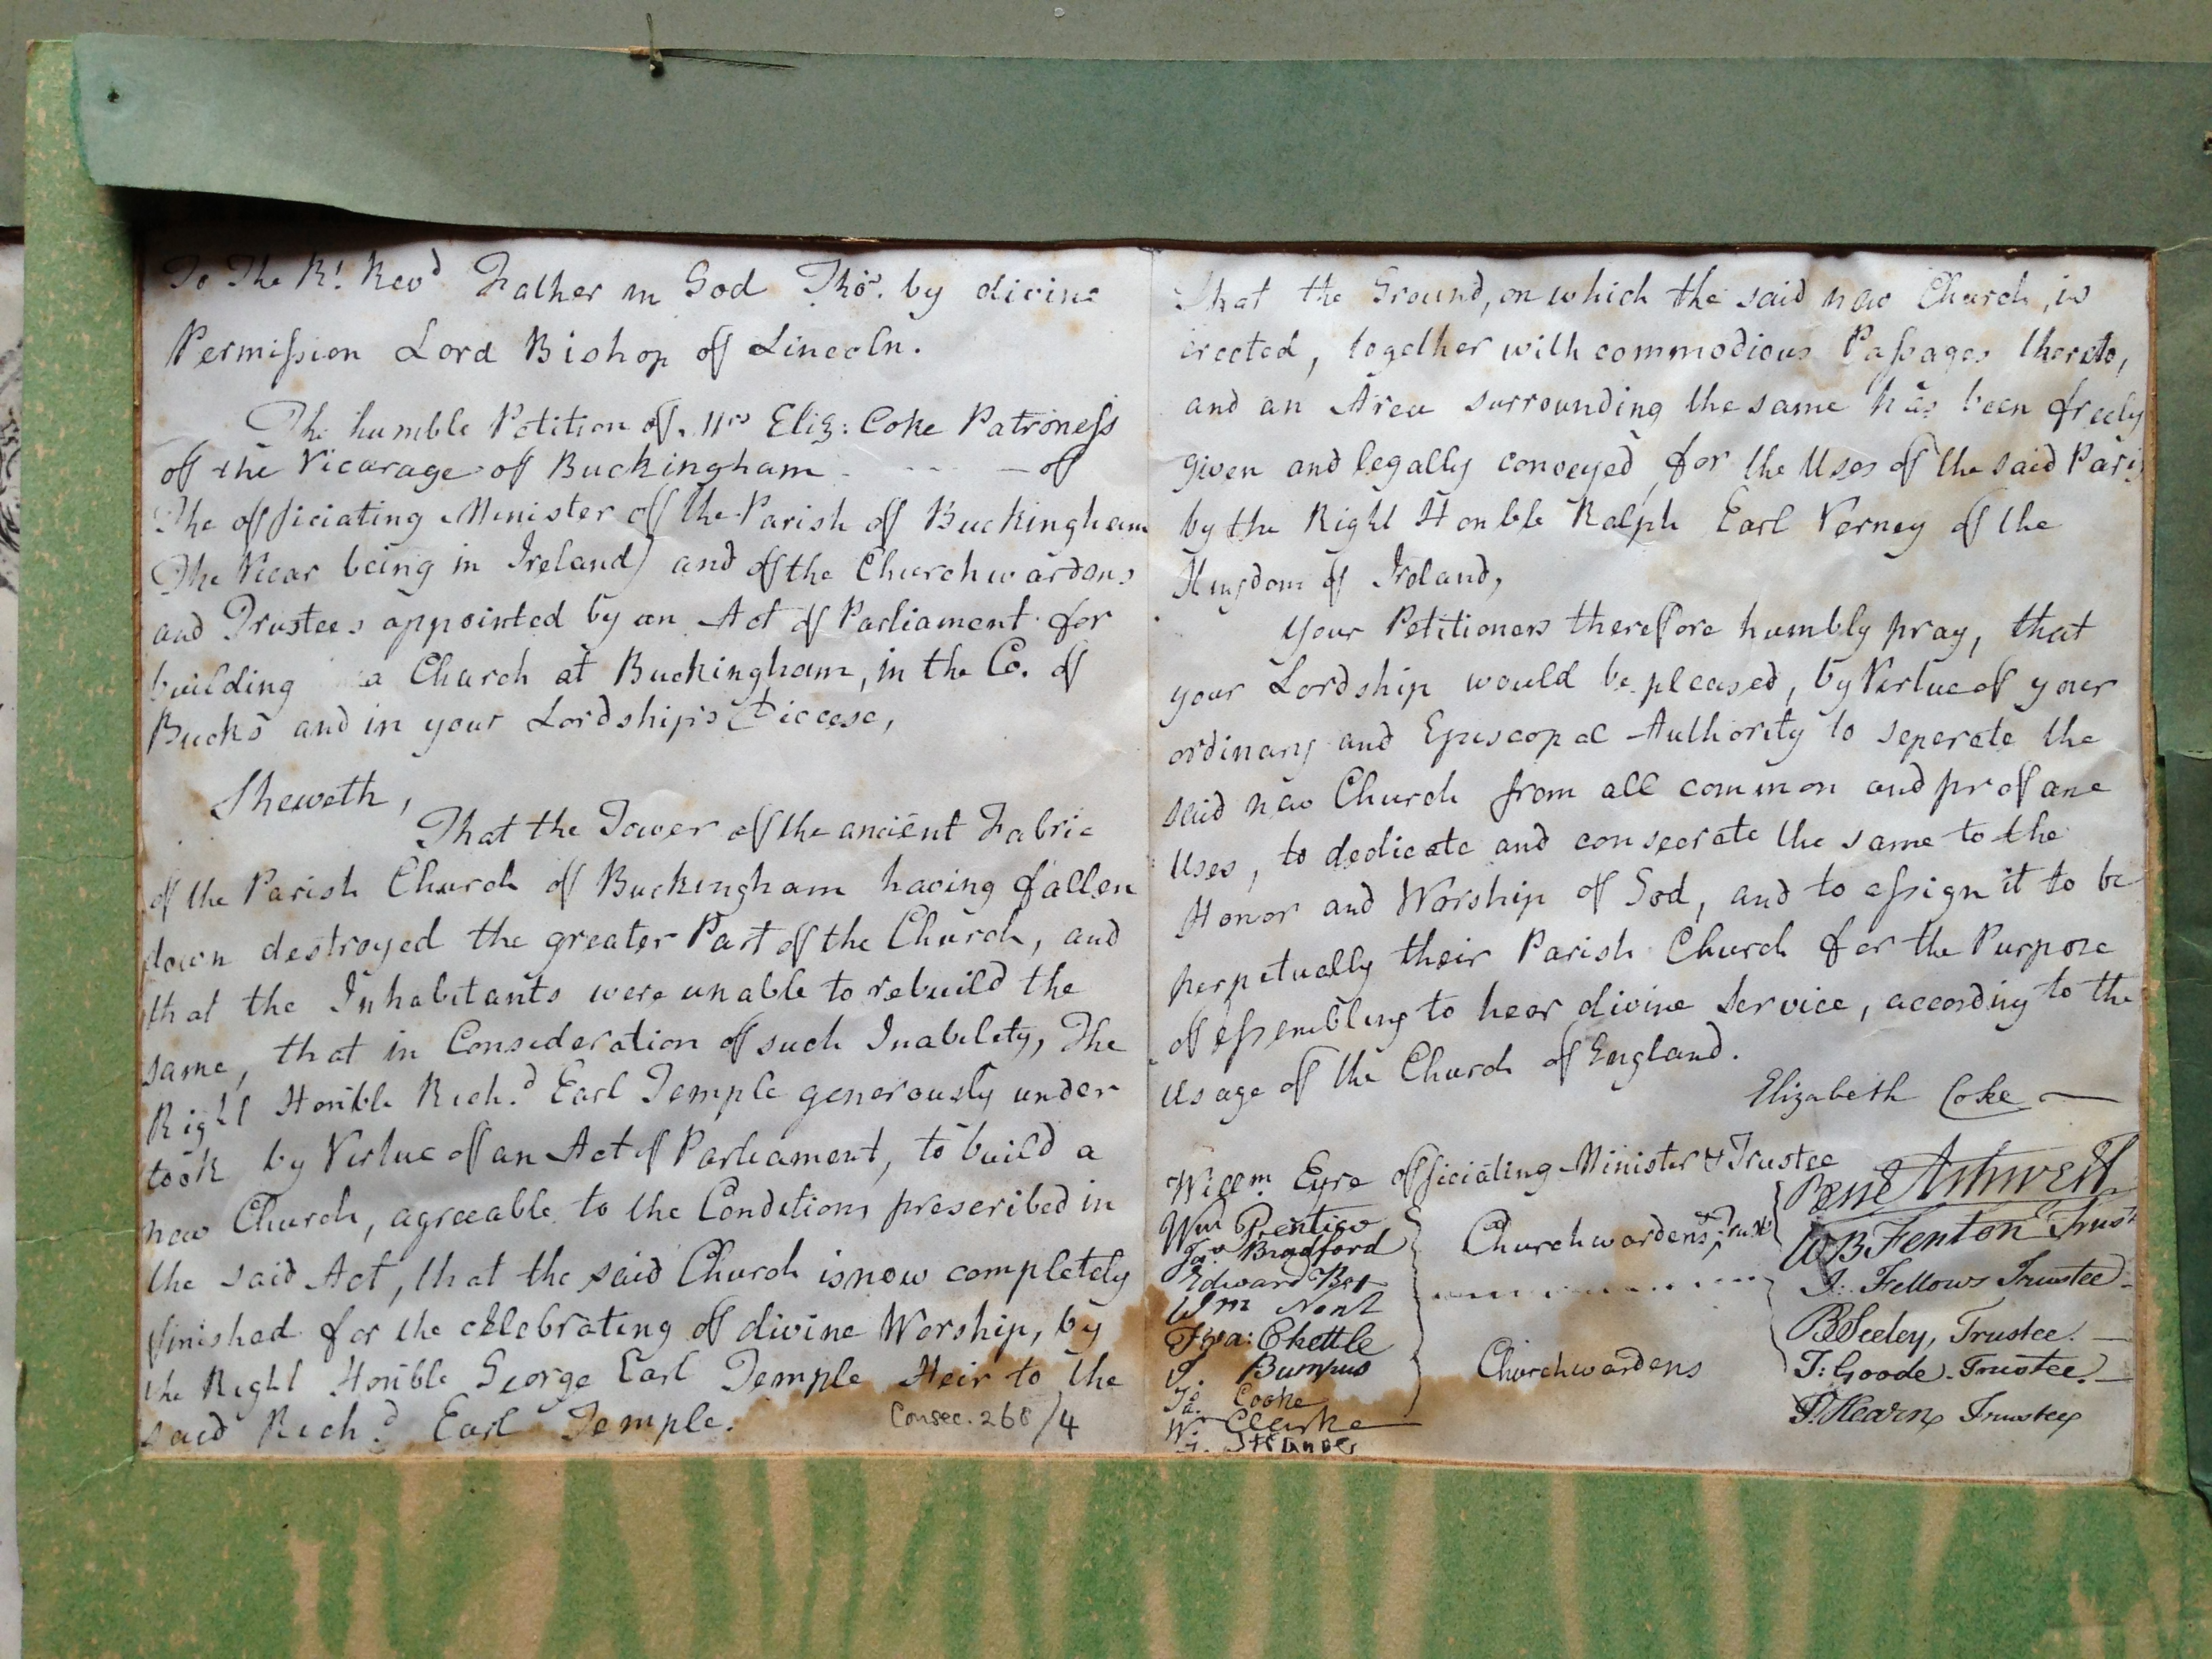 To The Rt. Revd Father in God Thos. by divine
Permission Lord Bishop of Lincoln.
The humble Petition of Mrs Eliz: Coke Patroness
of the Vicarage of Buckingham - - - - of
The officiating Minister of the Parish of Buckingham
The Vicar being in Ireland) and of the Churchwardens
and Trustees appointed by an Act of Parliament for
building a Church at Buckingham, in the Co. of
Bucks and in your Lordship's Diocese,
Sheweth,
That the Tower of the ancient Fabric
of the Parish Church of Buckingham having fallen
down destroyed the greater Part of the Church, and
that the Inhabitants were unable to rebuild the
same, that in Consideration of such Inability, The
Right Honble Rich.d Earl Temple generously under
took by Virtue of an Act of Parliament, to build a
new Church, agreeable to the Conditions prescribed in
the said Act, that the said Church is now completely
finished for the celebrating of divine Worship, by
the Right Honble George Earl Temple Heir to the
said Rich.d Earl Temple.
Consec. 268/4
That the Ground, on which the said new Church, is
erected, together with commodious Passages thereto,
and an Area surrounding the same has been freely
given and legally conveyed for the Uses of the said Paris
by the Right Honble Ralph Earl Verney of the
Kingdom of Ireland,
Your Petitioners therefore humbly pray, that
your Lordship would be pleased, by Virtue of your
ordinary and Episcopal Authority to seperate the
said new Church from all common and profane
Uses, to dedicate and consecrate the same to the
Honor and Worship of God, and to assign it to be
perpetually their Parish Church for the Purpose
of assembling to hear divine Service, according to the
usage of the Church of England.
Elizabeth Coke
Willm. Eyre officiating Minister & Trustee
Wm Bradford
Edward
Wm
Fra: Chettle
Bumpus
Cooke
W. Clarke
Churchwardens & Trust
Churchwardens
Ashwell
WB Fenton Trust
Fellows Trustee
B Seeley, Trustee.
T: Goode. Trustee.
P. Hearn Trustee